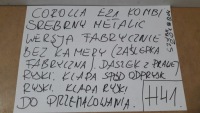 COROLLA E21 KOMBI
SREBRNY METALIC
WERSJA FABRYCZNIE
BEZ KAMERY (ZAŚLEPKA
FABRYCZNA) DASZEK Z PRAWEJ
RYSKI. KLAPA SPÓD ODPRYSK
RYSKI. KLAPA RYSKI
DO PRZEMALOWANIA.
H41